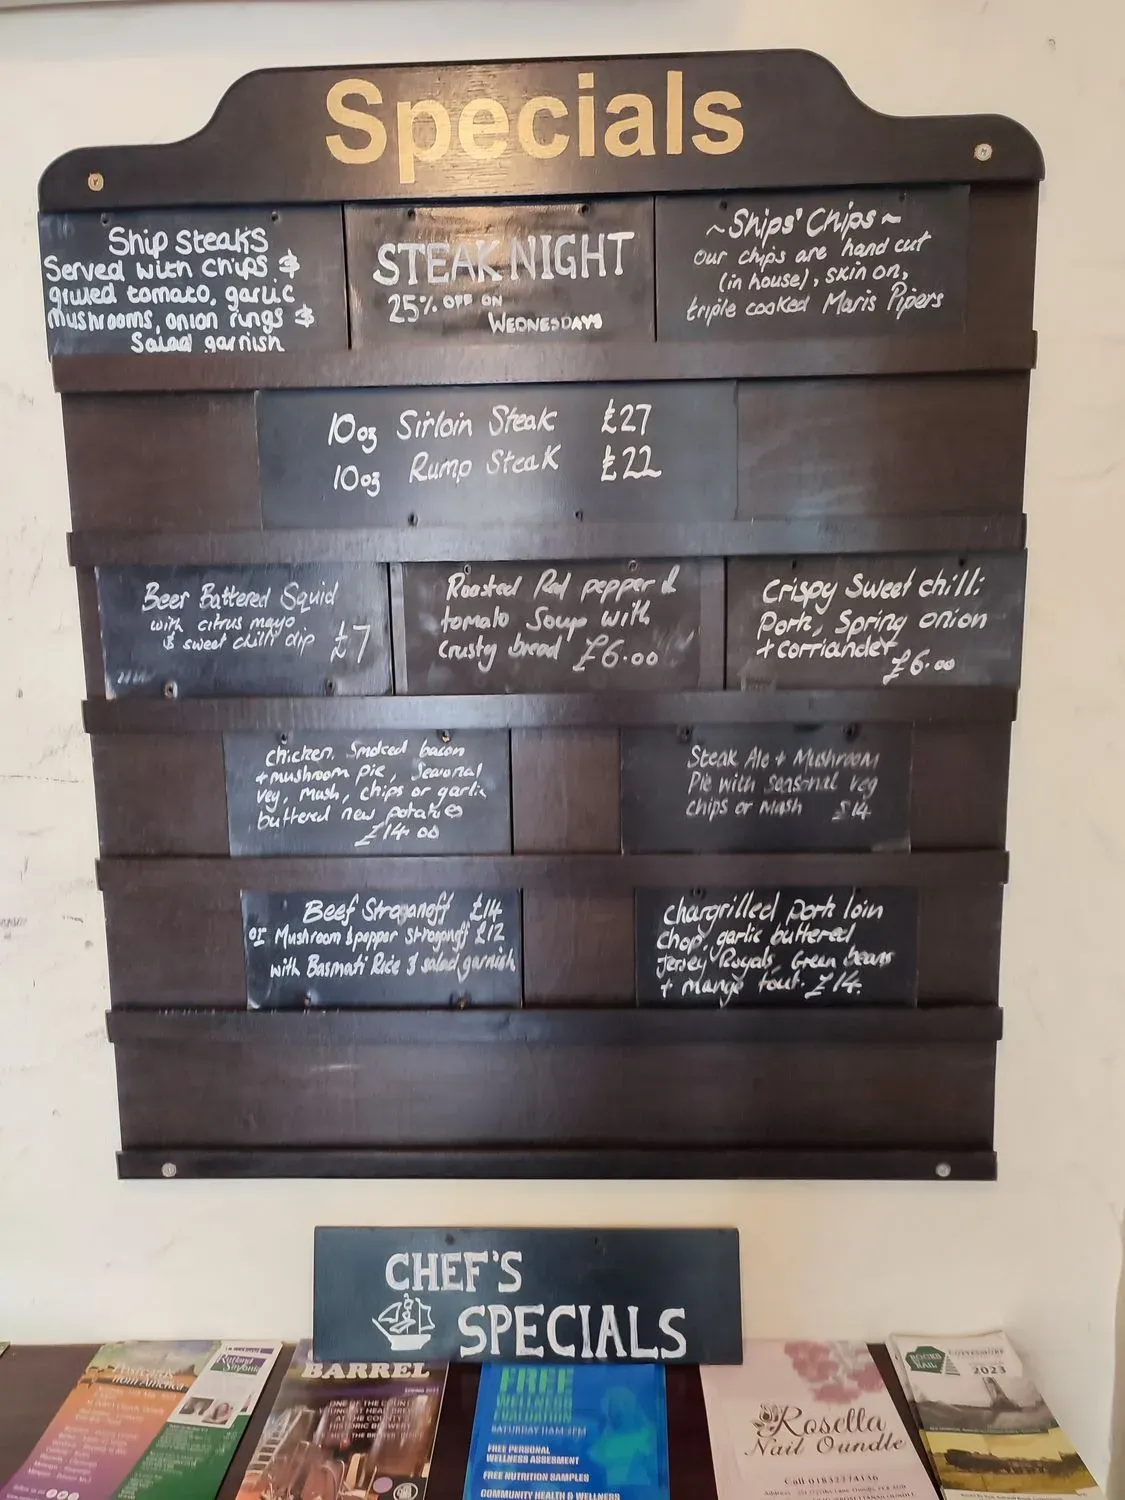 Specials
Ship Steaks
Served with chips &
grilled tomato, garlic
mushrooms, onion rings &
Salad garnish
STEAK NIGHT
25% OFF ON
WEDNESDAYS
~Ships' Chips~
Our chips are hand cut
(in house), skin on,
triple cooked Maris Pipers
10oz Sirloin Steak £27
10oz Rump Steak £22
Beer Battered Squid
with citrus mayo
& sweet chilli dip £7
Roasted Red pepper &
tomato Soup with
crusty bread £6.00
Crispy Sweet chilli
Pork, Spring onion
+ corriander
£6.00
chicken, Smoked bacon
+ mushroom pie, Seasonal
veg, mash, chips or garlic
buttered new potatoes
£14.00
Steak Ale + Mushroom
Pie with seasonal veg
chips or mash £14
Beef Stroganoff £14
or Mushroom & pepper Stroganoff £12
with Basmati Rice & salad garnish
chargrilled pork loin
chop, garlic buttered
Jersey Royals, Green beans
+ mange tout. £14.
CHEF'S
SPECIALS
Postcards
from America
Rutland
Sinfonia
BARREL
FREE
WELLNESS
EVALUATION
SATURDAY 11AM-2PM
FREE PERSONAL
WELLNESS ASSESSMENT
FREE NUTRITION SAMPLES
COMMUNITY HEALTH & WELLNESS
Rosella
Nail Oundle
Call 01832774136
ROCKS
BY RAIL
COTTESMORE
2023